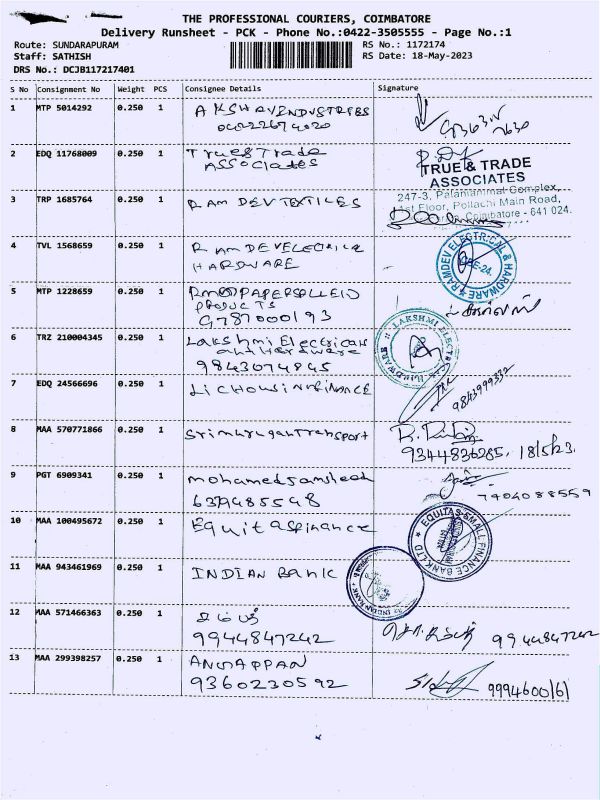 THE PROFESSIONAL COURIERS, COIMBATORE
Delivery Runsheet - PCK - Phone No.:0422-3505555 - Page No.:1
Route: SUNDARAPURAM RS No.: 1172174
Staff: SATHISH RS Date: 18-May-2023
DRS No.: DCJB117217401
S No Consignment No Weight PCS Consignee Details Signature
1 MTP 5014292 0.250 1 AKSHAV INDUSTRIES
2 EDQ 11768009 0.250 1 True & Trade
ASSOCIATES
TRUE & TRADE
ASSOCIATES
247-3, Palaniammal Complex,
1st Floor, Pollachi Main Road,
Coimbatore - 641 024.
3 TRP 1685764 0.250 1 RAM DEV TEXTILES
4 TVL 1568659 0.250 1 RAMDEV ELECTRICA
HARDWARE
RAMDEV ELECTRICAL & HARDWARE
CBE-24.
5 MTP 1228659 0.250 1
PRODUCTS
9787000193
6 TRZ 210004345 0.250 1 Lakshmi Electrican
and Hardware
9843074845
LAKSHMI ELECTRICAL HARDWARE
7 EDQ 24566696 0.250 1
9842999332
8 MAA 570771866 0.250 1 SrimuruganTransport
9344836285, 18/5/23.
9 PGT 6909341 0.250 1 mohamedsamsheeh
6379485548
7904088559
10 MAA 100495672 0.250 1 Equitasfinance
EQUITAS SMALL FINANCE BANK LTD
11 MAA 943461969 0.250 1 INDIAN Bank
INDIAN BANK
12 MAA 571466363 0.250 1
9944847242 9944847242
13 MAA 299398257 0.250 1 ANGAPPAN
9360230592 9994600161